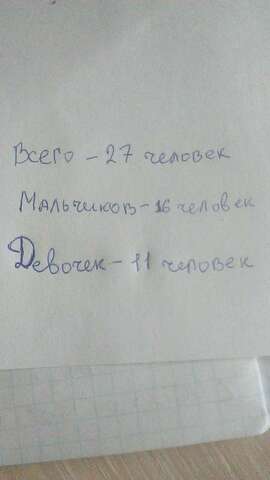 Всего - 27 человек
Мальчиков - 16 человек
Девочек - 11 человек